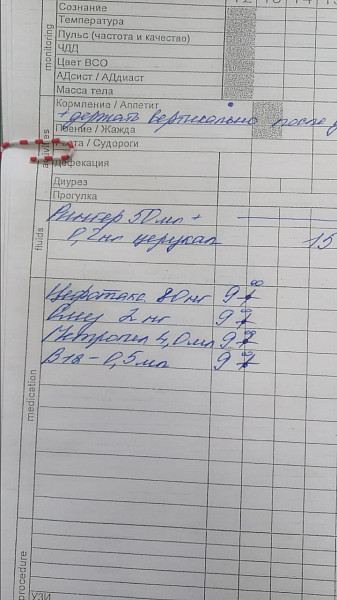 12 13 14 15
Сознание
Температура
Пульс (частота и качество)
ЧДД
Цвет ВСО
АДсист / АДдиаст
Масса тела
Кормление / Аппетит
+ держать вертикально после
Поение / Жажда
Рвота / Судороги
Дефекация
Диурез
Прогулка
Рингер 50мл +
0,2мл церукал 15
Цефотакс 80мг 9 00
2 мг 9
Метрогил 4,0мл 9
B12 - 0,5мл 9
УЗИ
monitoring
fluids
medication
procedure